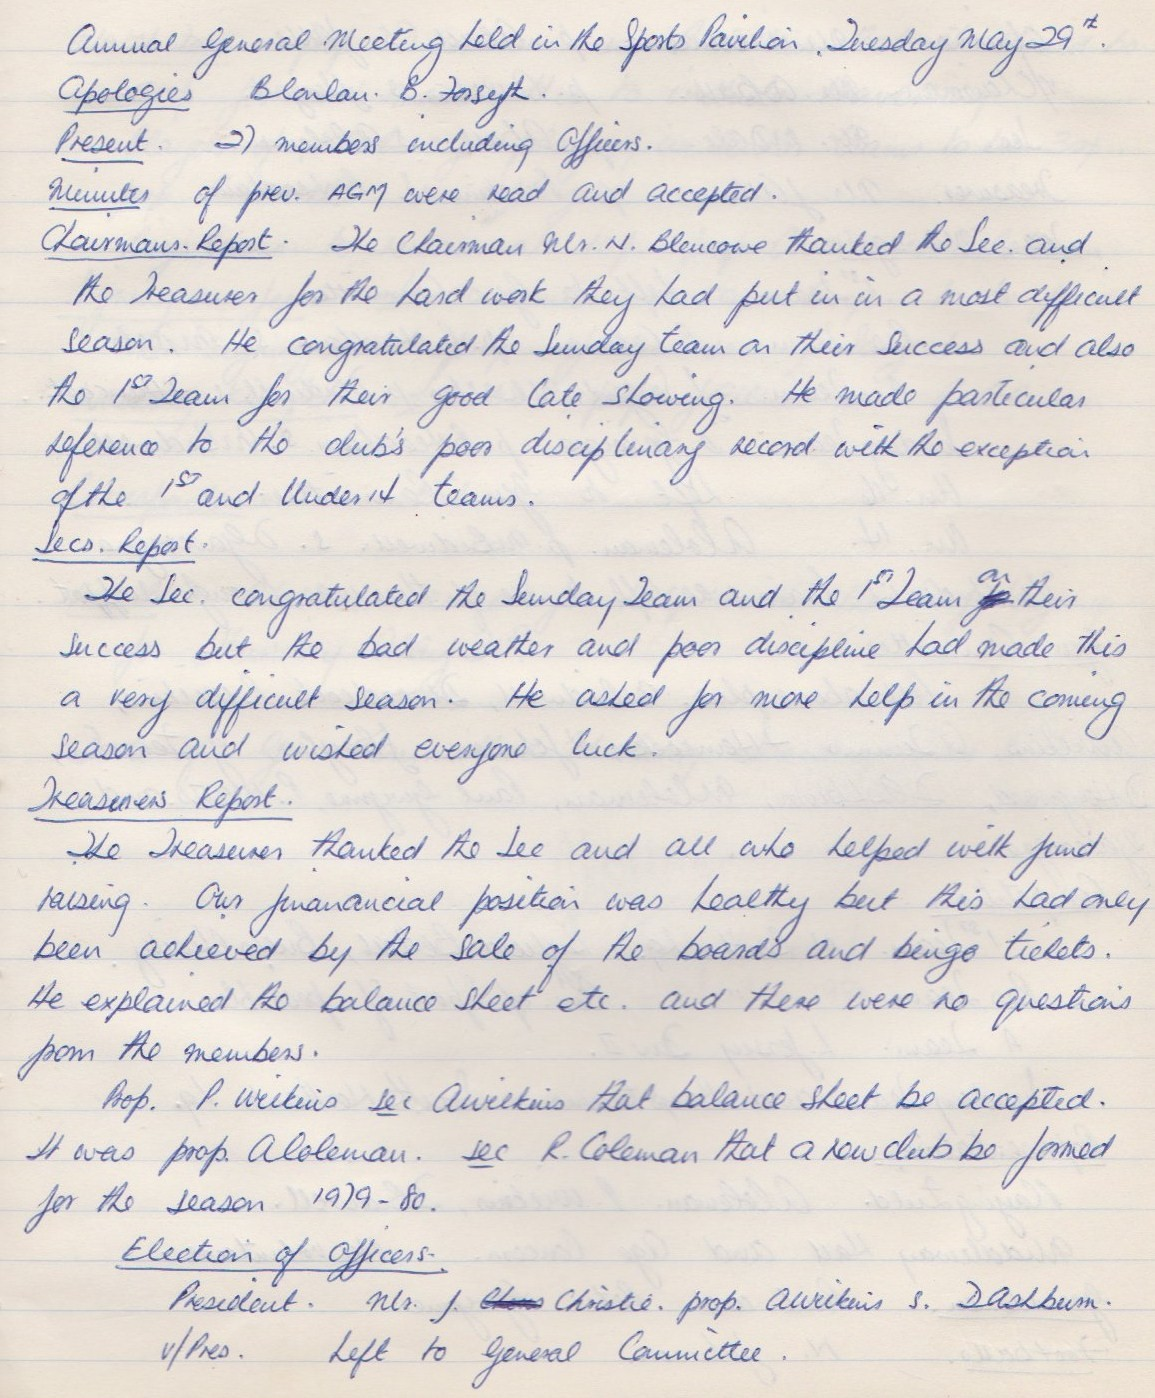 Annual General Meeting held in the Sports Pavilion, Tuesday May 29th.
Apologies Blonlan. B. Forsyth.
Present. 27 members including Officers.
Minutes of prev. AGM were read and accepted.
Chairmans. Report. The Chairman Mr. N. Blencowe thanked the Sec. and
the Treasurer for the hard work they had put in in a most difficult
season. He congratulated the Sunday team on their success and also
the 1st Team for their good late showing. He made particular
reference to the club's poor disciplinary record with the exception
of the 1st and Under 14 teams.
Secs. Report.
The Sec. congratulated the Sunday Team and the 1st Team on their
success but the bad weather and poor discipline had made this
a very difficult season. He asked for more help in the coming
season and wished everyone luck.
Treasurers Report.
The Treasurer thanked the Sec and all who helped with fund
raising. Our finanancial position was healthy but this had only
been achieved by the sale of the boards and bingo tickets.
He explained the balance sheet etc. and there were no questions
from the members.
Prop. P. Wilkins sec A Wilkins that balance sheet be accepted.
It was prop. A Coleman. sec R. Coleman that a new club be formed
for the season 1979-80.
Election of Officers.
President. Mr. J. Christie. prop. A Wilkins s. D Ashburn.
V/Pres. Left to General Committee.